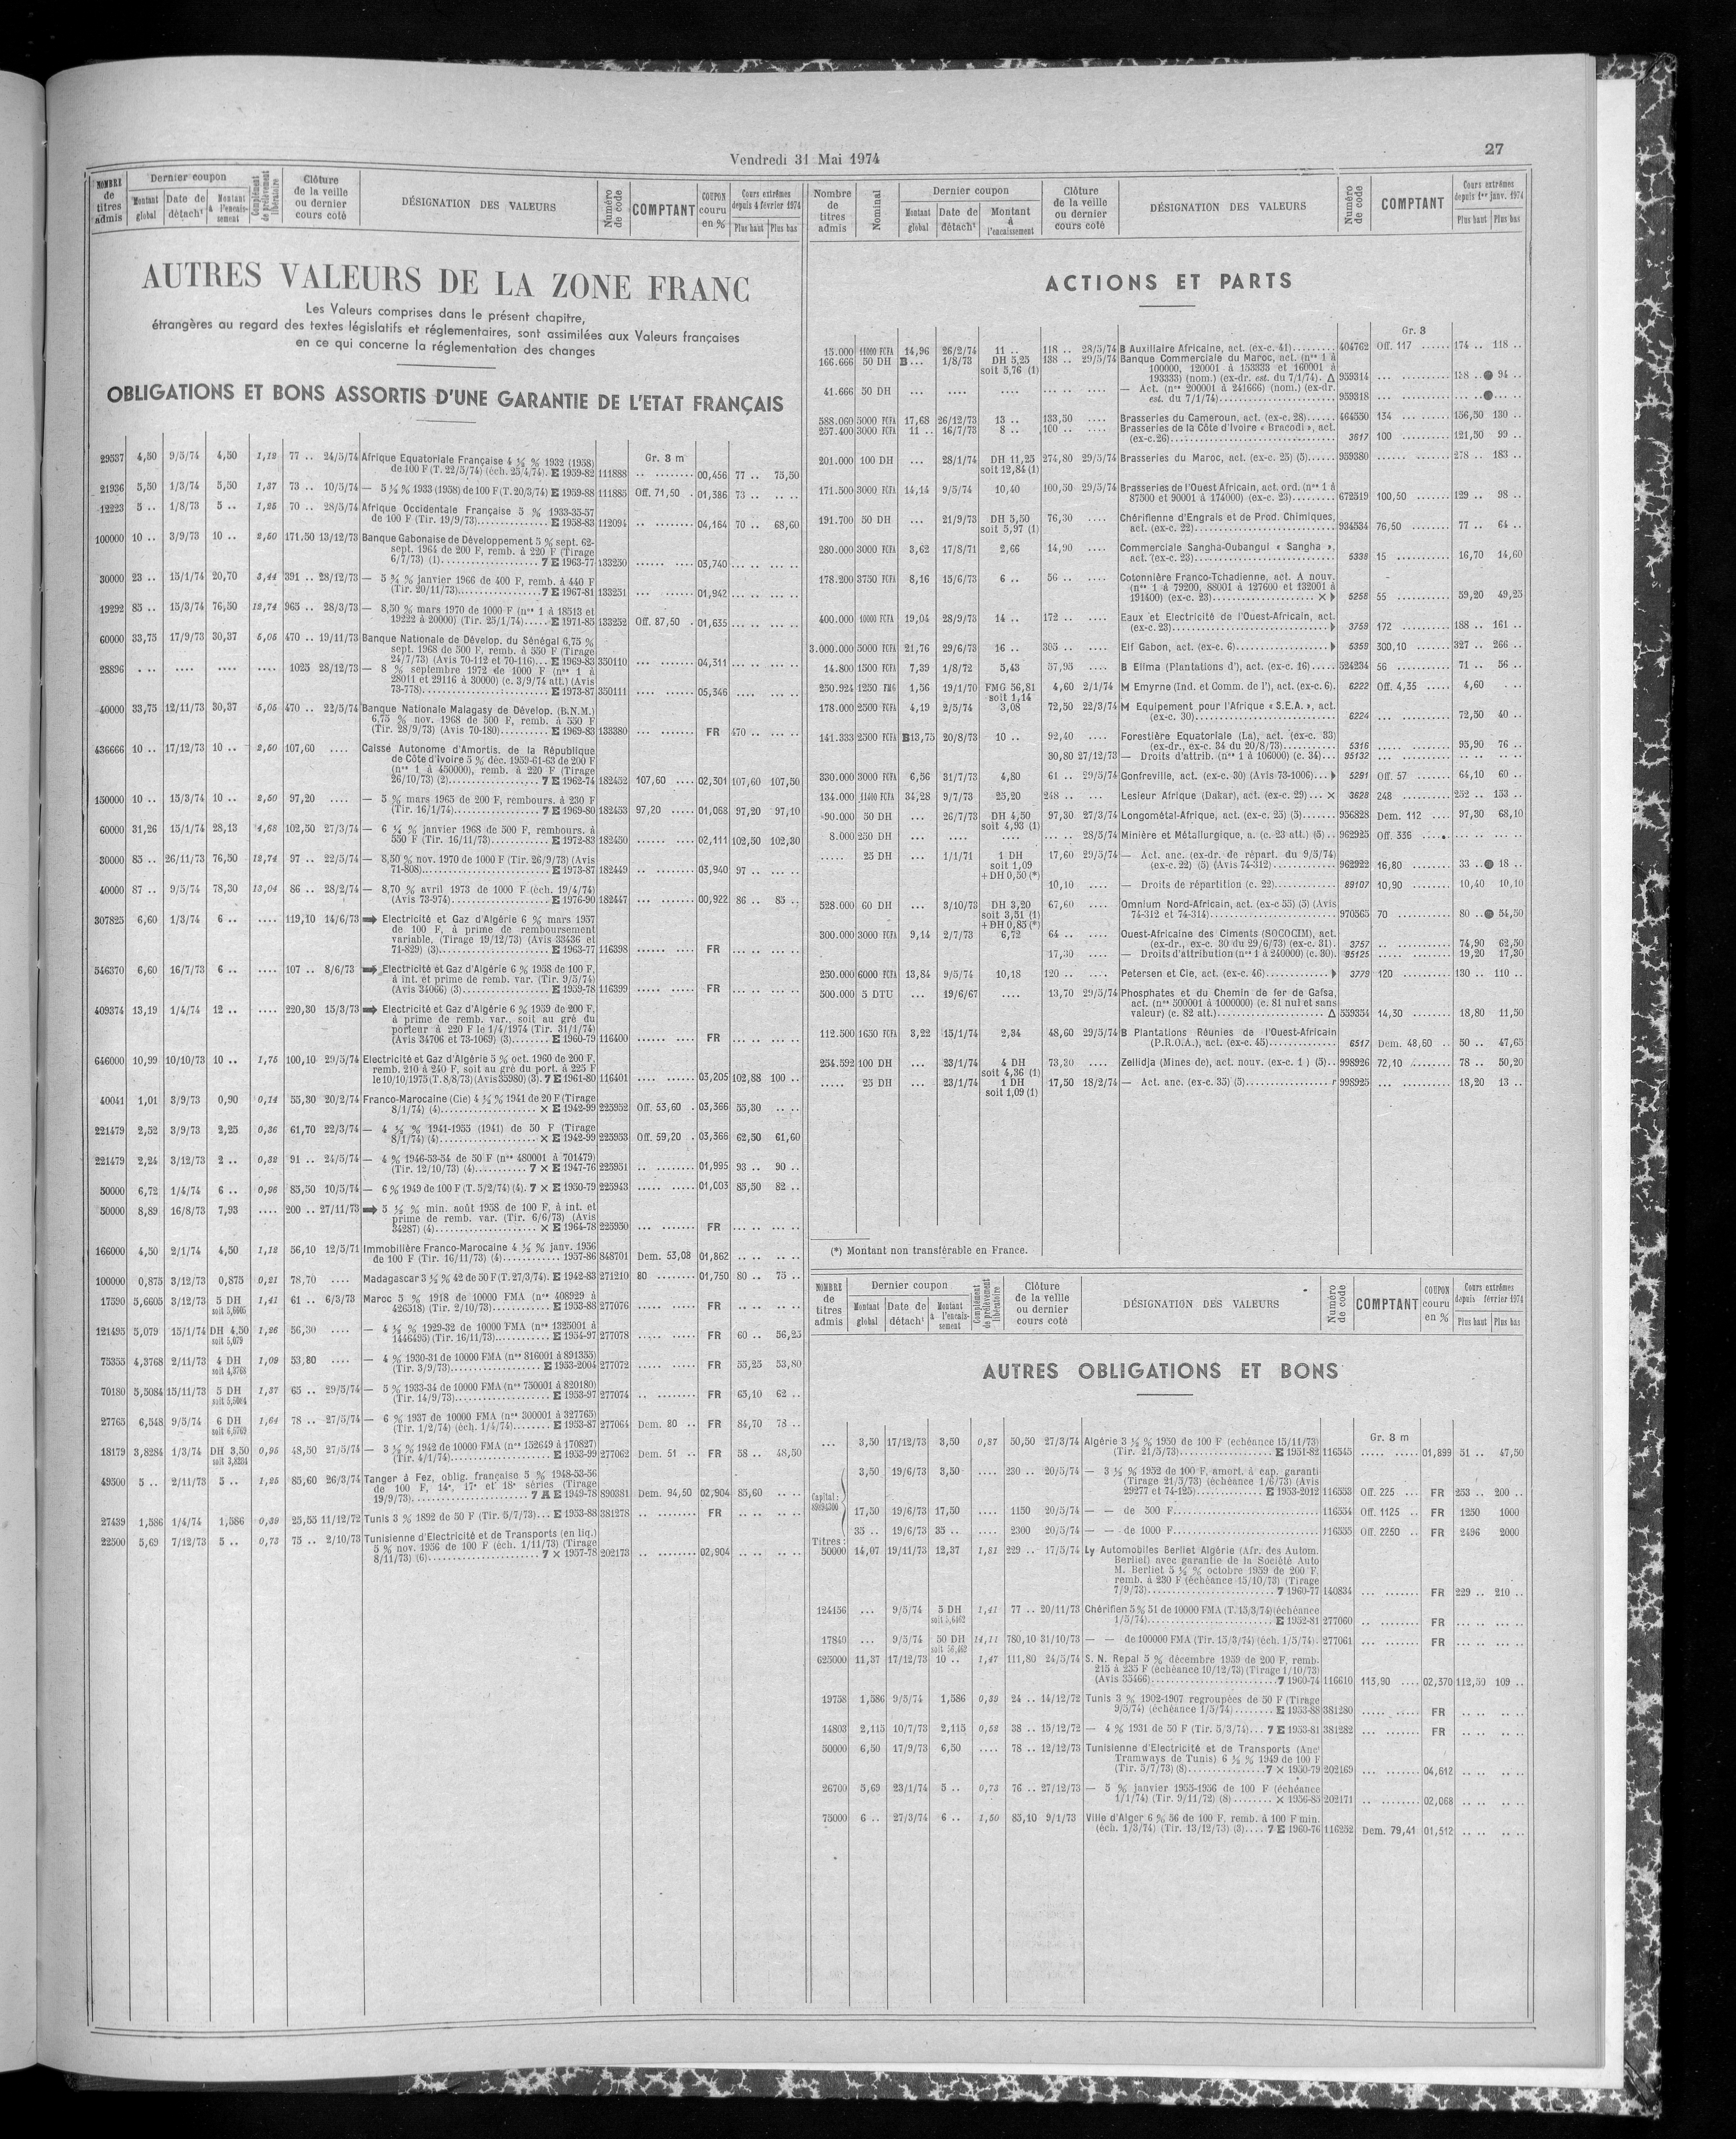 Vendredi 31 Mai 1974
27
NOMBRE de titres admis
Dernier coupon
Montant global
Date de détach^t
Montant à l'encaissement
Complément de prélèvement libératoire
Clôture de la veille ou dernier cours coté
DÉSIGNATION DES VALEURS
Numéro de code
COMPTANT
COUPON couru en %
Cours extrêmes depuis 4 février 1974
Plus haut
Plus bas
AUTRES VALEURS DE LA ZONE FRANC
Les Valeurs comprises dans le présent chapitre,
étrangères au regard des textes législatifs et réglementaires, sont assimilées aux Valeurs françaises
en ce qui concerne la réglementation des changes
OBLIGATIONS ET BONS ASSORTIS D'UNE GARANTIE DE L'ETAT FRANÇAIS
Gr. 3 m
29537 4,50 9/5/74 4,50 1,12 77 .. 24/5/74 Afrique Equatoriale Française 4 ½ % 1932 (1958)
de 100 F (T. 22/5/74) (éch. 25/4/74). E 1959-82 111888 .. ........ 00,456 77 .. 75,50
21936 5,50 1/3/74 5,50 1,37 73 .. 10/5/74 — 5 ½ % 1933 (1958) de 100 F (T. 20/3/74) E 1959-88 111885 Off. 71,50 . 01,386 73 .. .. ..
12223 5 .. 1/8/73 5 .. 1,25 70 .. 28/5/74 Afrique Occidentale Française 5 % 1933-35-57
de 100 F (Tir. 19/9/73).............. E 1958-83 112094 .. ........ 04,164 70 .. 68,60
100000 10 .. 3/9/73 10 .. 2,50 171,50 13/12/73 Banque Gabonaise de Développement 5 % sept. 62-
sept. 1964 de 200 F, remb. à 220 F (Tirage
6/7/73) (1)................... 7 E 1963-77 133250 ... ...... 03,740 ... .. ... ..
30000 23 .. 15/1/74 20,70 3,44 391 .. 28/12/73 — 5 ¾ % janvier 1966 de 400 F, remb. à 440 F
(Tir. 20/11/73)................. 7 E 1967-81 133251 ... ...... 01,942 ... .. ... ..
19292 85 .. 15/3/74 76,50 12,74 965 .. 28/3/73 — 8,50 % mars 1970 de 1000 F (n°s 1 à 18513 et
19222 à 20000) (Tir. 25/1/74)..... E 1971-85 133252 Off. 87,50 . 01,635 ... .. ... ..
60000 33,75 17/9/73 30,37 5,05 470 .. 19/11/73 Banque Nationale de Dévelop. du Sénégal 6,75 %
sept. 1968 de 500 F, remb. à 550 F (Tirage
24/7/73) (Avis 70-112 et 70-116)... E 1969-83 350110 ... ....... 04,311 ... .. ... ..
28896 . .. .... .... .... 1025 28/12/73 — 8 % septembre 1972 de 1000 F (n°s 1 à
28011 et 29116 à 30000) (c. 3/9/74 att.) (Avis
73-778)....................... E 1973-87 350111 .... ...... 05,346 .... .. ... ..
40000 33,75 12/11/73 30,37 5,05 470 .. 22/5/74 Banque Nationale Malagasy de Dévelop. (B.N.M.)
6,75 % nov. 1968 de 500 F, remb. à 550 F
(Tir. 28/9/73) (Avis 70-180).......... E 1969-83 133380 ... ....... FR 470 .. ... ..
436666 10 .. 17/12/73 10 .. 2,50 107,60 .... Caisse Autonome d'Amortis. de la République
de Côte d'Ivoire 5 % déc. 1959-61-63 de 200 F
(n°s 1 à 450000), remb. à 220 F (Tirage
26/10/73) (2)................... 7 E 1962-74 182452 107,60 .... 02,301 107,60 107,50
150000 10 .. 15/3/74 10 .. 2,50 97,20 .... — 5 % mars 1965 de 200 F, rembours. à 230 F
(Tir. 16/1/74)................. 7 E 1969-80 182453 97,20 ..... 01,068 97,20 97,10
60000 31,26 15/1/74 28,13 4,68 102,50 27/3/74 — 6 ¼ % janvier 1968 de 500 F, rembours. à
550 F (Tir. 16/11/73)............ E 1972-83 182450 .. ....... 02,111 102,50 102,30
30000 85 .. 26/11/73 76,50 12,74 97 .. 22/5/74 — 8,50 % nov. 1970 de 1000 F (Tir. 26/9/73) (Avis
71-808)....................... E 1973-87 182449 .. ........ 03,940 97 .. ... ..
40000 87 .. 9/5/74 78,30 13,04 86 .. 28/2/74 — 8,70 % avril 1973 de 1000 F (éch. 19/4/74)
(Avis 73-974)................. E 1976-90 182447 ... ....... 00,922 86 .. 85 ..
307825 6,60 1/3/74 6 .. .... 119,10 14/6/73 ➡ Electricité et Gaz d'Algérie 6 % mars 1957
de 100 F, à prime de remboursement
variable, (Tirage 19/12/73) (Avis 33436 et
71-829) (3)...................... E 1963-77 116398 ...... .... FR ... .. ... ..
546370 6,60 16/7/73 6 .. .... 107 .. 8/6/73 ➡ Electricité et Gaz d'Algérie 6 % 1958 de 100 F,
à int. et prime de remb. var. (Tir. 9/5/74)
(Avis 34066) (3).................. E 1959-78 116399 ..... ..... FR ... .. ... ..
409374 13,19 1/4/74 12 .. .... 220,30 15/3/73 ➡ Electricité et Gaz d'Algérie 6 % 1959 de 200 F,
à prime de remb. var., soit au gré du
porteur à 220 F le 1/4/1974 (Tir. 31/1/74)
(Avis 34706 et 73-1069) (3)........ E 1960-79 116400 ..... ...... FR ... .. ... ..
646000 10,99 10/10/73 10 .. 1,75 100,10 29/5/74 Electricité et Gaz d'Algérie 5 % oct. 1960 de 200 F,
remb. 210 à 240 F, soit au gré du port. à 225 F
le 10/10/1975 (T. 8/8/73) (Avis 35980) (3). 7 E 1961-80 116401 .... ...... 03,205 102,88 100 ..
40041 1,01 3/9/73 0,90 0,14 55,30 20/2/74 Franco-Marocaine (Cie) 4 ½ % 1941 de 20 F (Tirage
8/1/74) (4)................... × E 1942-99 225952 Off. 53,60 . 03,366 55,30 .. ..
221479 2,52 3/9/73 2,25 0,36 61,70 22/3/74 — 4 ½ % 1941-1955 (1941) de 50 F (Tirage
8/1/74) (4)................... × E 1942-99 225953 Off. 59,20 . 03,366 62,50 61,60
221479 2,24 3/12/73 2 .. 0,32 91 .. 24/5/74 — 4 % 1946-53-54 de 50 F (n°s 480001 à 701479)
(Tir. 12/10/73) (4)........... 7 × E 1947-76 225951 .. ........ 01,995 93 .. 90 ..
50000 6,72 1/4/74 6 .. 0,96 85,50 10/5/74 — 6 % 1949 de 100 F (T. 5/2/74) (4). 7 × E 1950-79 225943 ..... ..... 01,003 85,50 82 ..
50000 8,89 16/8/73 7,93 .... 200 .. 27/11/73 ➡ 5 ½ % min. août 1958 de 100 F, à int. et
prime de remb. var. (Tir. 6/6/73) (Avis
34287) (4)................... × E 1964-78 225950 ... ........ FR ... .. ... ..
166000 4,50 2/1/74 4,50 1,12 56,10 12/5/71 Immobilière Franco-Marocaine 4 ½ % janv. 1956
de 100 F (Tir. 16/11/73) (4)............ 1957-86 848701 Dem. 53,08 01,862 .. .. .. ..
100000 0,875 3/12/73 0,875 0,21 78,70 .... Madagascar 3 ½ % 42 de 50 F (T. 27/3/74). E 1942-83 271210 80 ........ 01,750 80 .. 75 ..
17590 5,6605 3/12/73 5 DH 1,41 61 .. 6/3/73 Maroc 5 % 1918 de 10000 FMA (n°s 408929 à
soit 5,6605 426518) (Tir. 2/10/73)............ E 1953-88 277076 ..... ..... FR .. .. .. ..
121495 5,079 15/1/74 DH 4,50 1,26 56,30 .... — 4 ½ % 1929-32 de 10000 FMA (n°s 1325001 à
soit 5,079 1446495) (Tir. 16/11/73)........... E 1954-97 277078 ..... ..... FR 60 .. 56,25
75355 4,3768 2/11/73 4 DH 1,09 53,80 .... — 4 % 1930-31 de 10000 FMA (n°s 816001 à 891355)
soit 4,3768 (Tir. 3/9/73)................ E 1953-2004 277072 ..... ..... FR 55,25 53,80
70180 5,5084 15/11/73 5 DH 1,37 65 .. 29/5/74 — 5 % 1933-34 de 10000 FMA (n°s 750001 à 820180)
soit 5,5084 (Tir. 14/9/73).................. E 1953-97 277074 .. ........ FR 65,10 62 ..
27765 6,548 9/5/74 6 DH 1,64 78 .. 27/5/74 — 6 % 1937 de 10000 FMA (n°s 300001 à 327765)
(Tir. 1/2/74) (éch. 1/4/74)........ E 1953-87 277064 Dem. 80 .. FR 84,70 78 ..
18179 3,8284 1/3/74 DH 3,50 0,95 48,50 27/5/74 — 3 ½ % 1942 de 10000 FMA (n°s 152649 à 170827)
soit 3,8284 (Tir. 4/1/74)................... E 1953-99 277062 Dem. 51 .. FR 58 .. 48,50
49500 5 .. 2/11/73 5 .. 1,25 85,60 26/3/74 Tanger à Fez, oblig. française 5 % 1948-53-56
de 100 F, 14e, 17e et 18e séries (Tirage
19/9/73)..................... 7 E 1949-78 890381 Dem. 94,50 02,904 85,60 .. ..
27439 1,586 1/4/74 1,586 0,39 25,55 11/12/72 Tunis 3 % 1892 de 50 F (Tir. 5/7/73)... E 1953-88 381278 .. ........ FR .. .. .. ..
22500 5,69 7/12/73 5 .. 0,73 75 .. 2/10/73 Tunisienne d'Electricité et de Transports (en liq.)
5 % nov. 1956 de 100 F (éch. 1/11/73) (Tirage
8/11/73) (6)....................... 7 × 1957-78 202173 .. ........ 02,904 .. .. .. ..
Nombre de titres admis
Nominal
Dernier coupon
Montant global
Date de détach^t
Montant à l'encaissement
Clôture de la veille ou dernier cours coté
DÉSIGNATION DES VALEURS
Numéro de code
COMPTANT
Cours extrêmes depuis 1er janv. 1974
Plus haut
Plus bas
ACTIONS ET PARTS
Gr. 3
15.000 11000 FCFA 14,96 26/2/74 11 .. 118 .. 28/5/74 B Auxiliaire Africaine, act. (ex-c. 41)......... 404762 Off. 117 ...... 174 .. 118 ..
166.666 50 DH B... 1/8/73 DH 5,25 138 .. 29/5/74 Banque Commerciale du Maroc, act. (n°s 1 à
soit 5,76 (1) 100000, 120001 à 153333 et 160001 à
193333) (nom.) (ex-dr. est. du 7/1/74). Δ 959314 ... ........ 138 .. ● 94 ..
41.666 50 DH ... .... .... ... .. .... — Act. (n°s 200001 à 241666) (nom.) (ex-dr.
est. du 7/1/74)...................... 959318 ... ........ ... .. ● ... ..
588.060 5000 FCFA 17,68 26/12/73 13 .. 133,50 .... Brasseries du Cameroun, act. (ex-c. 28)...... 464550 134 ........ 156,50 130 ..
257.400 3000 FCFA 11 .. 16/7/73 8 .. 100 .. .... Brasseries de la Côte d'Ivoire « Bracodi », act.
(ex-c. 26)............................ 3617 100 ......... 121,50 99 ..
201.000 100 DH ... 28/1/74 DH 11,25 274,80 29/5/74 Brasseries du Maroc, act. (ex-c. 25) (5)...... 959380 ..... ...... 278 .. 183 ..
soit 12,84 (1)
171.500 3000 FCFA 14,14 9/5/74 10,40 100,50 29/5/74 Brasseries de l'Ouest Africain, act. ord. (n°s 1 à
87500 et 90001 à 174000) (ex-c. 23)........ 672519 100,50 ....... 129 .. 98 ..
191.700 50 DH ... 21/9/73 DH 5,50 76,30 .... Chérifienne d'Engrais et de Prod. Chimiques,
soit 5,97 (1) act. (ex-c. 22)......................... 934534 76,50 ....... 77 .. 64 ..
280.000 3000 FCFA 3,62 17/8/71 2,66 14,90 .... Commerciale Sangha-Oubangui « Sangha »,
act. (ex-c. 23)......................... 5338 15 .......... 16,70 14,60
178.200 3750 FCFA 8,16 15/6/73 6 .. 56 .. .... Cotonnière Franco-Tchadienne, act. A nouv.
(n°s 1 à 79200, 88001 à 127600 et 132001 à
191400) (ex-c. 23)................... × ▶ 5258 55 .......... 59,20 49,25
400.000 10000 FCFA 19,04 28/9/73 14 .. 172 .. .... Eaux et Electricité de l'Ouest-Africain, act.
(ex-c. 23)............................ ▶ 3759 172 ........ 188 .. 161 ..
3.000.000 5000 FCFA 21,76 29/6/73 16 .. 305 .. .... Elf Gabon, act. (ex-c. 6)................. ▶ 5359 300,10 ...... 327 .. 266 ..
14.800 1500 FCFA 7,39 1/8/72 5,43 57,95 .... B Elima (Plantations d'), act. (ex-c. 16)..... 524234 56 ......... 71 .. 56 ..
250.924 1250 FMG 1,56 19/1/70 FMG 56,81 4,60 2/1/74 M Emyrne (Ind. et Comm. de l'), act. (ex-c. 6). 6222 Off. 4,35 ..... 4,60 . ..
soit 1,14
178.000 2500 FCFA 4,19 2/5/74 3,08 72,50 22/3/74 M Equipement pour l'Afrique « S.E.A. », act.
(ex-c. 30)............................ 6224 ... ........ 72,50 40 ..
141.333 2500 FCFA B13,75 20/8/73 10 .. 92,40 .... Forestière Equatoriale (La), act. (ex-c. 33)
(ex-dr., ex-c. 34 du 20/8/73)........... 5316 ..... ...... 95,90 76 ..
30,80 27/12/73 — Droits d'attrib. (n°s 1 à 106000) (c. 34)... 95132 ... ....... .. .. .. ..
330.000 3000 FCFA 6,56 31/7/73 4,80 61 .. 29/5/74 Gonfreville, act. (ex-c. 30) (Avis 73-1006)... ▶ 5291 Off. 57 ....... 64,10 60 ..
134.000 11400 FCFA 34,28 9/7/73 25,20 248 .. ... Lesieur Afrique (Dakar), act. (ex-c. 29)... × 3628 248 ......... 252 .. 153 ..
90.000 50 DH ... 26/7/73 DH 4,50 97,30 27/3/74 Longométal-Afrique, act. (ex-c. 25) (5)...... 956828 Dem. 112 .... 97,30 68,10
soit 4,93 (1)
8.000 250 DH ... .... .... ... .. 28/5/74 Minière et Métallurgique, a. (c. 23 att.) (5) .. 962925 Off. 336 ..... ... .. ... ..
..... 25 DH ... 1/1/71 1 DH 17,60 29/5/74 — Act. anc. (ex-dr. de répart. du 9/5/74)
soit 1,09 (ex-c. 22) (5) (Avis 74-312)............. 962922 16,80 ........ 33 .. ● 18 ..
+ DH 0,50 (*)
10,10 .... — Droits de répartition (c. 22)............. 89107 10,90 ........ 10,40 10,10
528.000 60 DH ... 3/10/73 DH 3,20 67,60 .... Omnium Nord-Africain, act. (ex-c 55) (5) (Avis
soit 3,51 (1) 74-312 et 74-314)...................... 970565 70 .......... 80 .. ● 54,50
+ DH 0,85 (*)
300.000 3000 FCFA 9,14 2/7/73 6,72 64 .. .... Ouest-Africaine des Ciments (SOCOCIM), act.
(ex-dr., ex-c. 30 du 29/6/73) (ex-c. 31). 3757 .. .......... 74,90 62,50
17,30 .... — Droits d'attribution (n°s 1 à 240000) (c. 30). 95125 ..... ...... 19,20 17,30
250.000 6000 FCFA 13,84 9/5/74 10,18 120 .. .... Petersen et Cie, act. (ex-c. 46)............ ▶ 3779 120 ......... 130 .. 110 ..
500.000 5 DTU ... 19/6/67 .... 13,70 29/5/74 Phosphates et du Chemin de fer de Gafsa,
act. (n°s 500001 à 1000000) (c. 81 nul et sans
valeur) (c. 82 att.)..................... Δ 559354 14,30 ........ 18,80 11,50
112.500 1650 FCFA 3,22 15/1/74 2,34 48,60 29/5/74 B Plantations Réunies de l'Ouest-Africain
(P.R.O.A.), act. (ex-c. 45)............... 6517 Dem. 48,60 .. 50 .. 47,65
254.592 100 DH ... 23/1/74 4 DH 73,30 .... Zellidja (Mines de), act. nouv. (ex-c. 1 ) (5).. 998926 72,10 ........ 78 .. 50,20
soit 4,36 (1)
..... 25 DH ... 23/1/74 1 DH 17,50 18/2/74 — Act. anc. (ex-c. 35) (5)................ r 998925 ... ........ 18,20 13 ..
soit 1,09 (1)
(*) Montant non transférable en France.
NOMBRE de titres admis
Dernier coupon
Montant global
Date de détach^t
Montant à l'encaissement
Complément de prélèvement libératoire
Clôture de la veille ou dernier cours coté
DÉSIGNATION DES VALEURS
Numéro de code
COMPTANT
COUPON couru en %
Cours extrêmes depuis février 1974
Plus haut
Plus bas
AUTRES OBLIGATIONS ET BONS
Gr. 3 m
... 3,50 17/12/73 3,50 0,87 50,50 27/3/74 Algérie 3 ½ % 1950 de 100 F (échéance 15/11/73)
(Tir. 21/5/73)................... E 1951-82 116545 ..... ..... 01,899 51 .. 47,50
3,50 19/6/73 3,50 .... 230 .. 20/5/74 — 3 ½ % 1952 de 100 F, amort. à cap. garanti
(Tirage 21/5/73) (échéance 1/6/73) (Avis
29277 et 74-125)............. E 1953-2012 116553 Off. 225 ... FR 253 .. 200 ..
Capital : 89894300
17,50 19/6/73 17,50 .... 1150 20/5/74 — — de 500 F......................... 116554 Off. 1125 .. FR 1250 1000
35 .. 19/6/73 35 .. .... 2300 20/5/74 — — de 1000 F........................ 116555 Off. 2250 .. FR 2496 2000
Titres :
50000 14,07 19/11/73 12,37 1,81 229 .. 17/5/74 Ly Automobiles Berliet Algérie (Afr. des Autom.
Berliet) avec garantie de la Société Auto
M. Berliet 5 ½ % octobre 1959 de 200 F,
remb. à 230 F (échéance 15/10/73) (Tirage
7/9/73)......................... 7 1960-77 140834 ... ....... FR 229 .. 210 ..
124156 ... 9/5/74 5 DH 1,41 77 .. 20/11/73 Chérifien 5 % 51 de 10000 FMA (T. 15/3/74) (échéance
soit 5,6462 1/5/74)........................ E 1952-81 277060 .. ........ FR ... .. ... ..
17840 ... 9/5/74 50 DH 14,11 780,10 31/10/73 — — de 100000 FMA (Tir. 15/3/74) (éch. 1/5/74). 277061 ... ....... FR ... .. ... ..
soit 56,462
625000 11,37 17/12/73 10 .. 1,47 111,80 24/5/74 S. N. Repal 5 % décembre 1959 de 200 F, remb.
215 à 235 F (échéance 10/12/73) (Tirage 1/10/73)
(Avis 35466)........................ 7 1960-74 116610 113,90 .... 02,370 112,50 109 ..
19758 1,586 9/5/74 1,586 0,39 24 .. 14/12/72 Tunis 3 % 1902-1907 regroupées de 50 F (Tirage
9/5/74) (échéance 1/5/74)........ E 1953-88 381280 ..... ..... FR .. .. .. ..
14803 2,115 10/7/73 2,115 0,52 38 .. 15/12/72 — 4 % 1931 de 50 F (Tir. 5/3/74)... 7 E 1953-81 381282 ... ....... FR .. .. .. ..
50000 6,50 17/9/73 6,50 .... 78 .. 12/12/73 Tunisienne d'Electricité et de Transports (Anc^t
Tramways de Tunis) 6 ½ % 1949 de 100 F
(Tir. 5/7/73) (8)............... 7 × 1950-79 202169 ... ....... 04,612 .. .. .. ..
26700 5,69 23/1/74 5 .. 0,73 76 .. 27/12/73 — 5 % janvier 1955-1956 de 100 F (échéance
1/1/74) (Tir. 9/11/72) (8)........ × 1956-85 202171 .. ........ 02,068 .. .. .. ..
75000 6 .. 27/3/74 6 .. 1,50 85,10 9/1/73 Ville d'Alger 6 % 56 de 100 F, remb. à 100 F min.
(éch. 1/3/74) (Tir. 13/12/73) (3).... 7 E 1960-76 116252 Dem. 79,41 01,512 .. .. .. ..